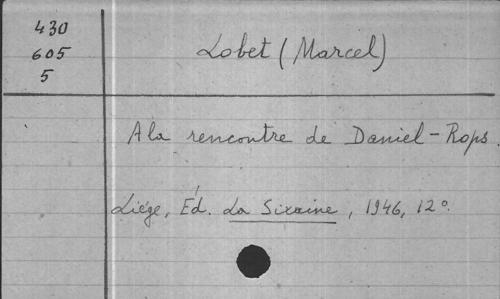 430
605
5
Lobet (Marcel)
A la rencontre de Daniel-Rops.
Liége, Éd. La Sixaine, 1946, 12°.